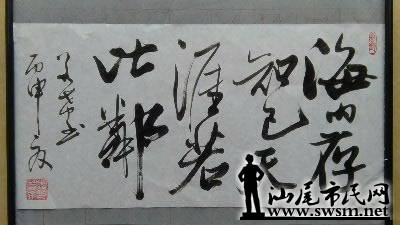 海内存
知己天
涯若
比鄰
丙申夏
汕尾市民网
www.swsm.net